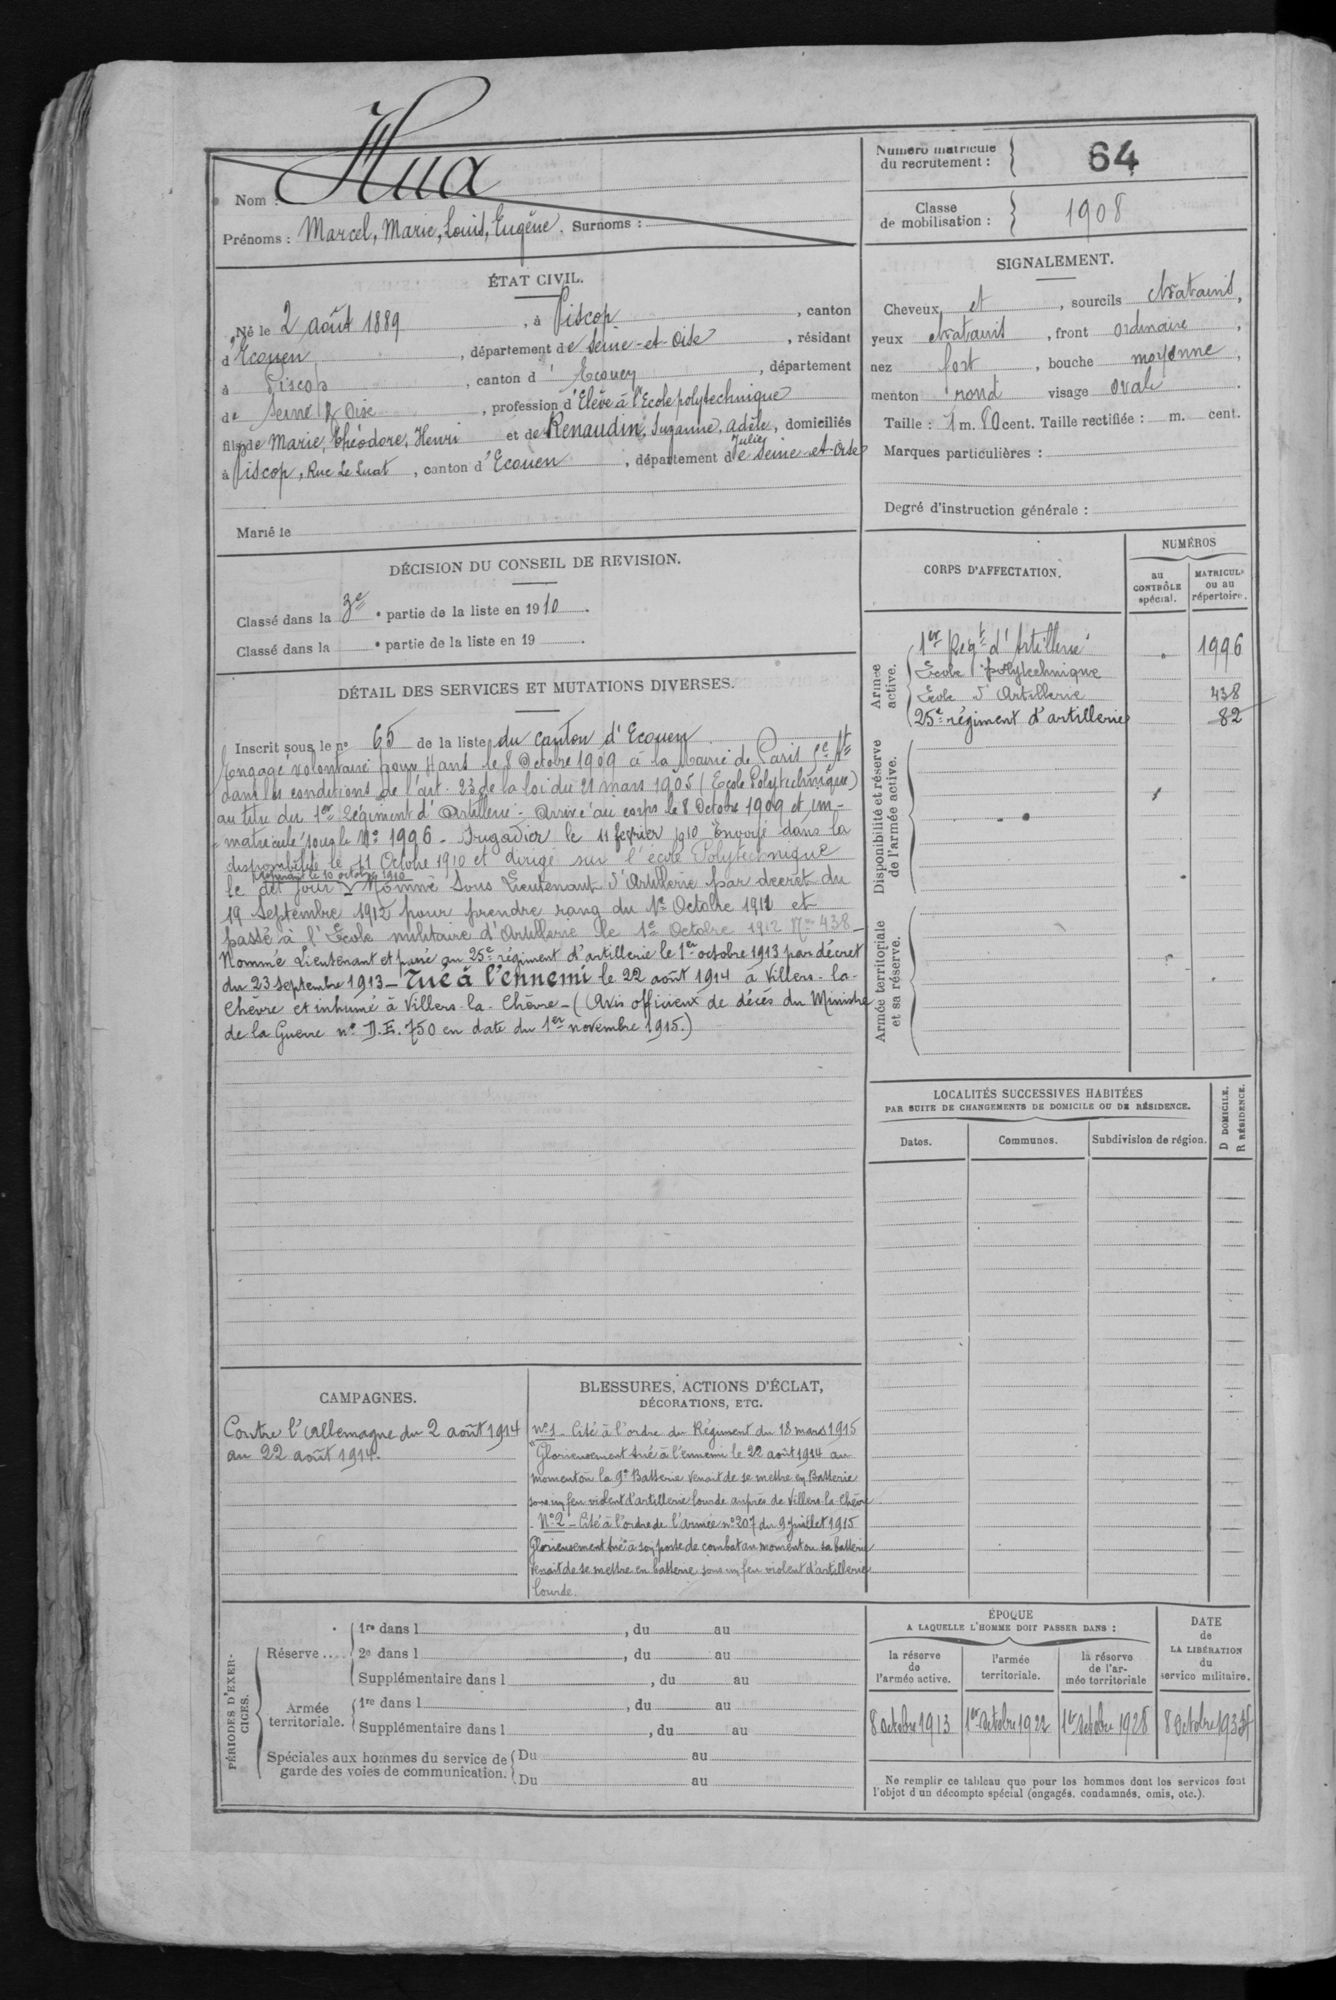 Nom : Hua
Prénoms : Marcel, Marie, Louis, Eugène. Surnoms :
Numéro matricule
du recrutement : 64
Classe
de mobilisation : 1908
ÉTAT CIVIL.
Né le 2 août 1889, à Piscop, canton
d'Ecouen, département de Seine-et-Oise, résidant
à Piscop, canton d'Ecouen, département
de Seine & Oise, profession d'Elève à l'Ecole polytechnique
fils de Marie, Théodore, Henri et de Renaudin, Suzanne, Adèle, domiciliés
Julie
à Piscop, Rue Le Luat, canton d'Ecouen, département de Seine-et-Oise
Marié le
SIGNALEMENT.
Cheveux et, sourcils chatains,
yeux chatains, front ordinaire,
nez fort, bouche moyenne,
menton rond visage ovale.
Taille : 1 m. 80 cent. Taille rectifiée : m. cent.
Marques particulières :
Degré d'instruction générale :
DÉCISION DU CONSEIL DE REVISION.
Classé dans la 3e e partie de la liste en 1910.
Classé dans la e partie de la liste en 19 .
DÉTAIL DES SERVICES ET MUTATIONS DIVERSES.
Inscrit sous le no 65 de la liste du canton d'Ecouen
Engagé volontaire pour 4 ans le 8 Octobre 1909 à la Mairie de Paris
dans les conditions de l'art. 23 de la loi du 21 mars 1905 (Ecole Polytechnique)
au titre du 1er Régiment d'Artillerie. Arrivé au corps le 8 Octobre 1909 et im-
matriculé sous le No 1996 - Brigadier le 11 février 1910 Envoyé dans la
disponibilité le 11 Octobre 1910 et dirigé sur l'école Polytechnique
le 10 octobre 1910
le dit jour Nommé Sous Lieutenant d'Artillerie par decret du
19 Septembre 1912 pour prendre rang du 1er Octobre 1911 et
passé à l'École militaire d'Artillerie le 1er Octobre 1912 No 438 -
Nommé Lieutenant et passé au 25e régiment d'artillerie le 1er octobre 1913 par décret
du 23 septembre 1913 - Tué à l'ennemi le 22 août 1914 à Villers-la-
Chèvre et inhumé à Villers-la-Chèvre - (Avis officieux de décès du Ministre
de la Guerre no D.E. 750 en date du 1er novembre 1915.)
CORPS D'AFFECTATION.
NUMÉROS
au
CONTRÔLE
spécial.
MATRICULE
ou au
répertoire.
Armée
active.
1er Regt d'Artillerie 1996
École polytechnique
École d'Artillerie 438
25e régiment d'artillerie 82
Disponibilité et réserve
de l'armée active.
Armée territoriale
et sa réserve.
LOCALITÉS SUCCESSIVES HABITÉES
PAR SUITE DE CHANGEMENTS DE DOMICILE OU DE RÉSIDENCE.
Dates. Communes. Subdivision de région.
D DOMICILE.
R RÉSIDENCE.
CAMPAGNES.
Contre l'Allemagne du 2 août 1914
au 22 août 1914.
BLESSURES, ACTIONS D'ÉCLAT,
DÉCORATIONS, ETC.
no 1 - Cité à l'ordre du Régiment du 18 mars 1915
"Glorieusement tué à l'ennemi le 22 août 1914 au
moment où la 9e Batterie venait de se mettre en Batterie
sous un feu violent d'artillerie lourde auprès de Villers-la-Chèvre
- No 2 - Cité à l'ordre de l'armée no 207 du 9 Juillet 1915
Glorieusement tué à son poste de combat au moment ou sa batterie
venait de se mettre en batterie sous un feu violent d'artillerie
lourde.
PÉRIODES D'EXER-
CICES.
Réserve....
1re dans l , du au
2e dans l , du au
Supplémentaire dans l , du au
Armée
territoriale.
1re dans l , du au
Supplémentaire dans l , du au
Spéciales aux hommes du service de
garde des voies de communication.
Du au
Du au
ÉPOQUE
A LAQUELLE L'HOMME DOIT PASSER DANS :
la réserve
de
l'armée active.
l'armée
territoriale.
la réserve
de l'ar-
mée territoriale
DATE
de
LA LIBÉRATION
du
service militaire.
8 Octobre 1913 1er Octobre 1922 1er Octobre 1928 8 Octobre
Ne remplir ce tableau que pour les hommes dont les services font
l'objet d'un décompte spécial (engagés, condamnés, omis, etc.).